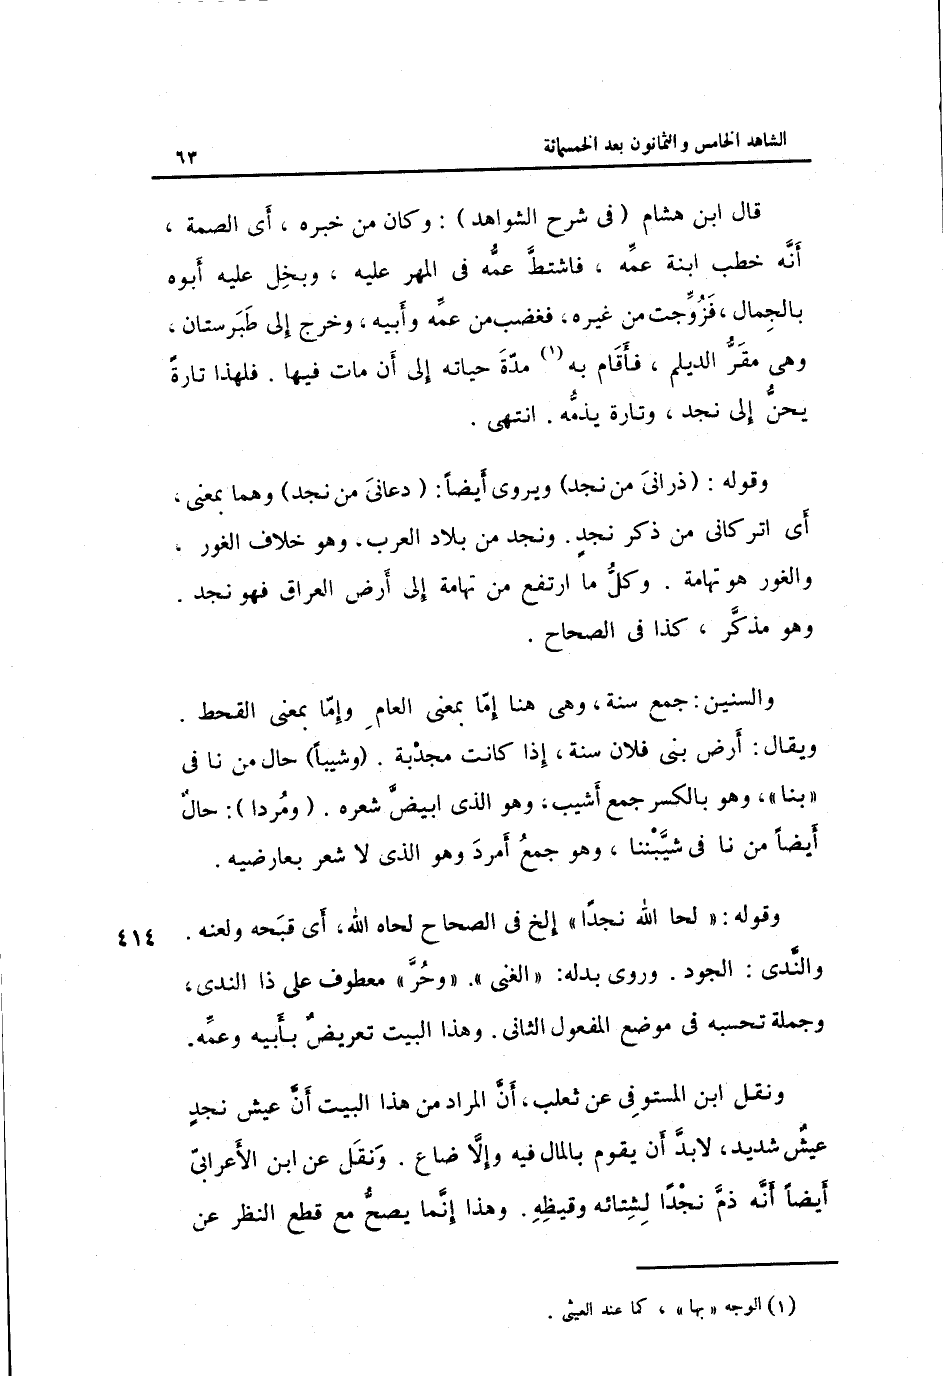 الشاهد الخامس والثمانون بعد الخمسمائة ٦٣
قال ابن هشام ( فى شرح الشواهد ) : وكان من خبره ، أى الصمة ،
أنَّه خطب ابنة عمِّه ، فاشتطَّ عمُّه فى المهر عليه ، وبخِل عليه أبوه
بالجِمال ، فَزُوِّجت من غيره ، فغضب من عمِّه وأبيه ، وخرج إلى طَبَرستان ،
وهى مقَرُّ الديلم ، فأقَام به (١) مدّةَ حياته إلى أن مات فيها . فلهذا تارةً
يحنُّ إلى نجد ، وتارة يذمُّه . انتهى .
وقوله : ( ذرانىَ من نجد ) ويروى أيضاً : ( دعانىَ من نجد ) وهما بمعنى ،
أى اتركانى من ذكر نجدٍ . ونجد من بلاد العرب . وهو خلاف الغور ،
والغور هو تهامة . وكلُّ ما ارتفع من تهامة إلى أرض العراق فهو نجد .
وهو مذكَّر ، كذا فى الصحاح .
والسنين : جمع سنة ، وهى هنا إمّا بمعنى العامِ وإمّا بمعنى القحط .
ويقال : أرض بنى فلان سنة ، إذا كانت مجدْبة . (وشيباً) حال من نا فى
«بنا» ، وهو بالكسر جمع أشيب ، وهو الذى ابيضَّ شعره . ( ومُردا ) : حالٌ
أيضاً من نا فى شيَّبْننا ، وهو جمعُ أمردَ وهو الذى لا شعر بعارضيه .
وقوله : « لحا الله نجدًا » إلخ فى الصحاح لحاه الله ، أى قبَحه ولعنه . ٤١٤
والنَّدى : الجود . وروى بدله : «الغنى» . «وحُرَّ» معطوف على ذا الندى ،
وجملة تحسبه فى موضع المفعول الثانى . وهذا البيت تعريضٌ بأبيه وعمِّه .
ونقل ابن المستوفى عن ثعلب ، أنَّ المراد من هذا البيت أنَّ عيش نجدٍ
عيشٌ شديد ، لابدَّ أن يقوم بالمال فيه وإلَّا ضاع . وَنقَل عن ابن الأعرابىّ
أيضاً أنَّه ذمَّ نجْدًا لِشِتائه وقيظِهِ . وهذا إنَّما يصحُّ مع قطع النظر عن
(١) الوجه «بها» ، كما عند العينى .